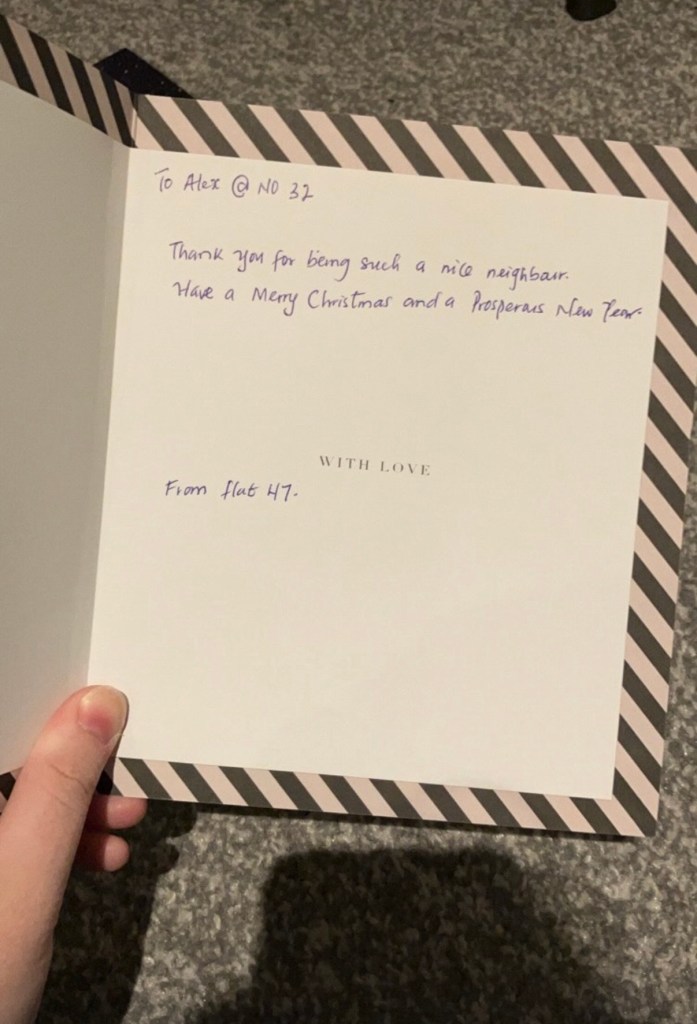 To Alex @ NO 32
Thank you for being such a nice neighbour.
Have a Merry Christmas and a Prosperous New Year.
WITH LOVE
From flat 47.